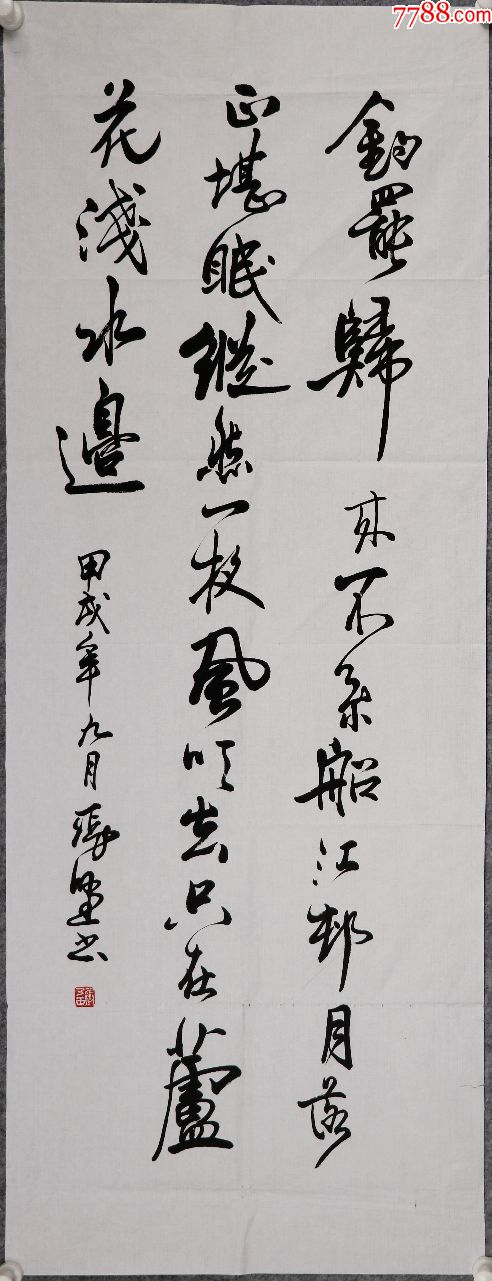 7788.com
釣罷歸来不系船江邨月落
正堪眠縱然一夜風吹去只在蘆
花淺水邊 甲戌年九月 張書